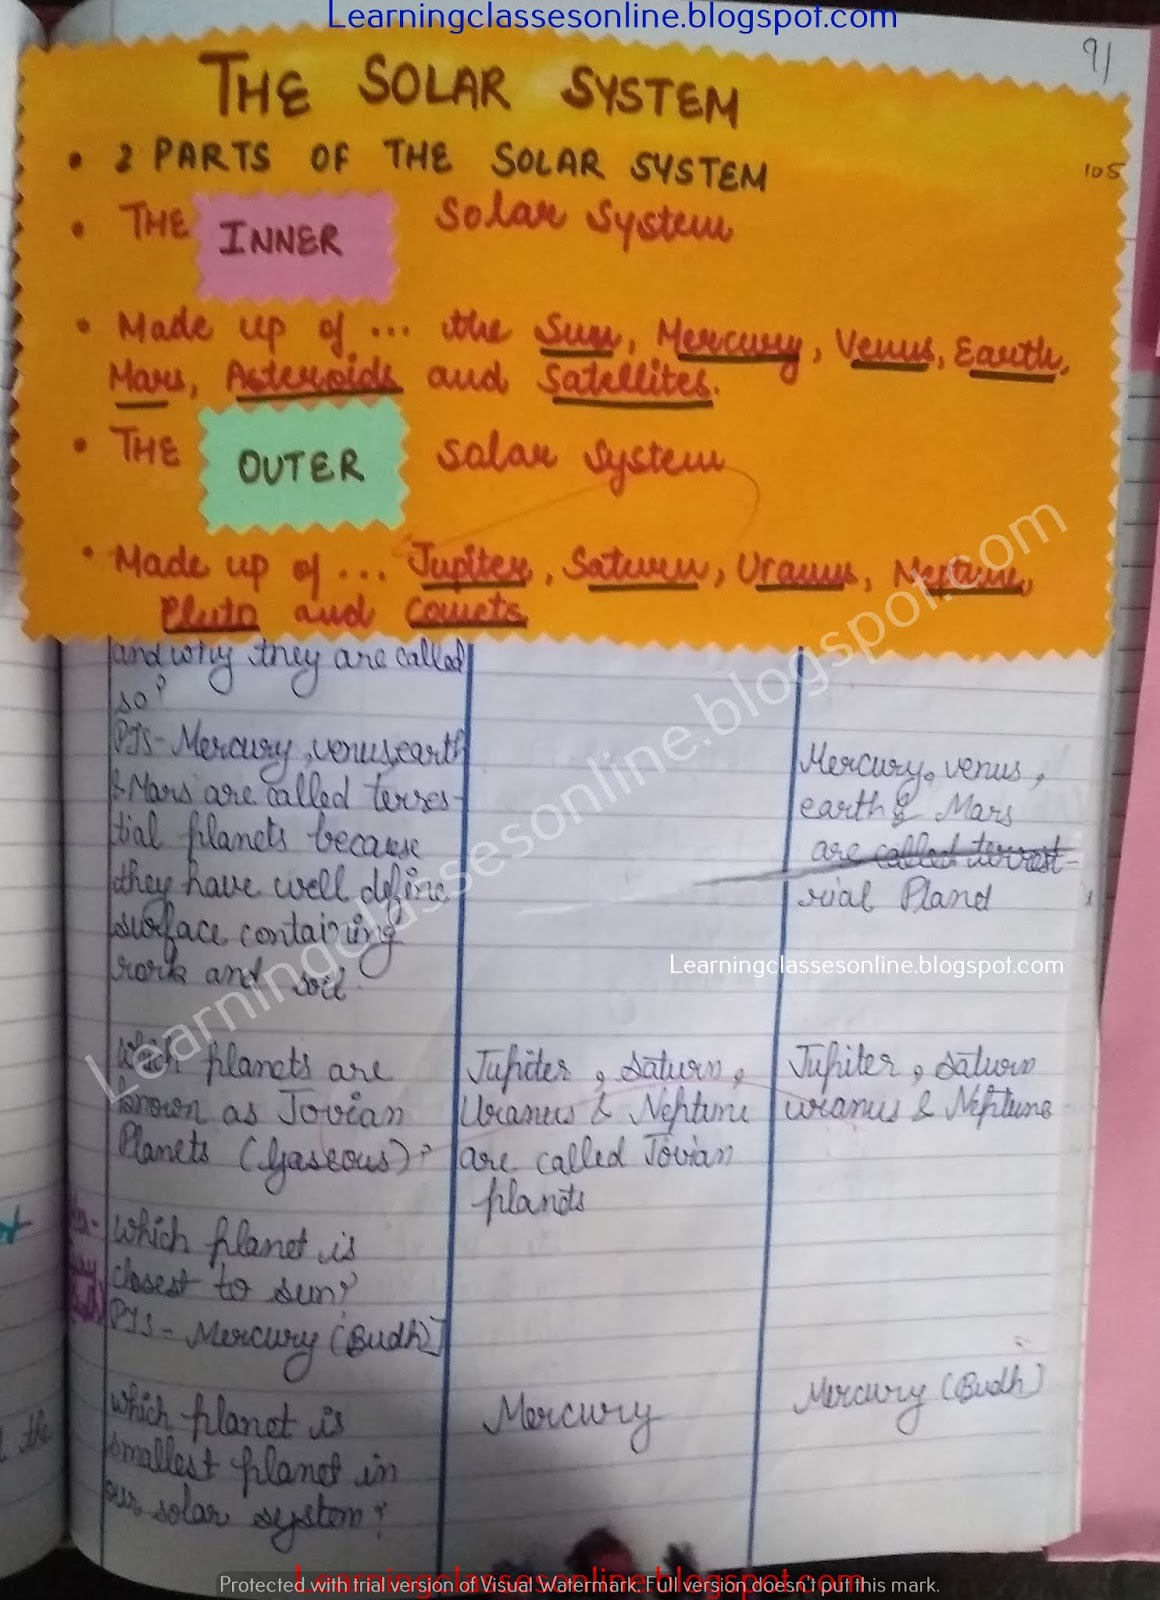 Learningclassesonline.blogspot.com
91
THE SOLAR SYSTEM
105
• 2 PARTS OF THE SOLAR SYSTEM
• THE INNER Solar System
• Made up of ... the Sun, Mercury, Venus, Earth,
Mars, Asteroids and Satellites.
• THE OUTER Solar System
• Made up of ... Jupiter, Saturn, Uranus, Neptune,
Pluto and Comets
Learningclassesonline.blogspot.com
and why they are called
so?
PTS- Mercury, venus, earth
& Mars are called terres-
tial planets because
they have well define
surface containing
and soil.
Mercury, venus,
earth & Mars
are called terrest-
rial Pland
Learningclassesonline.blogspot.com
Which planets are
known as Jovian
Planets (Gaseous)?
Jupiter, Saturn,
Uranus & Neptune
are called Jovian
planets
Jupiter, Saturn
uranus & Neptune
Which planet is
closest to sun?
PTS- Mercury (Budh)
Mercury (Budh)
Which planet is
smallest planet in
our solar system?
Mercury
the
Learningclassesonline.blogspot.com
Protected with trial version of Visual Watermark. Full version doesn't put this mark.